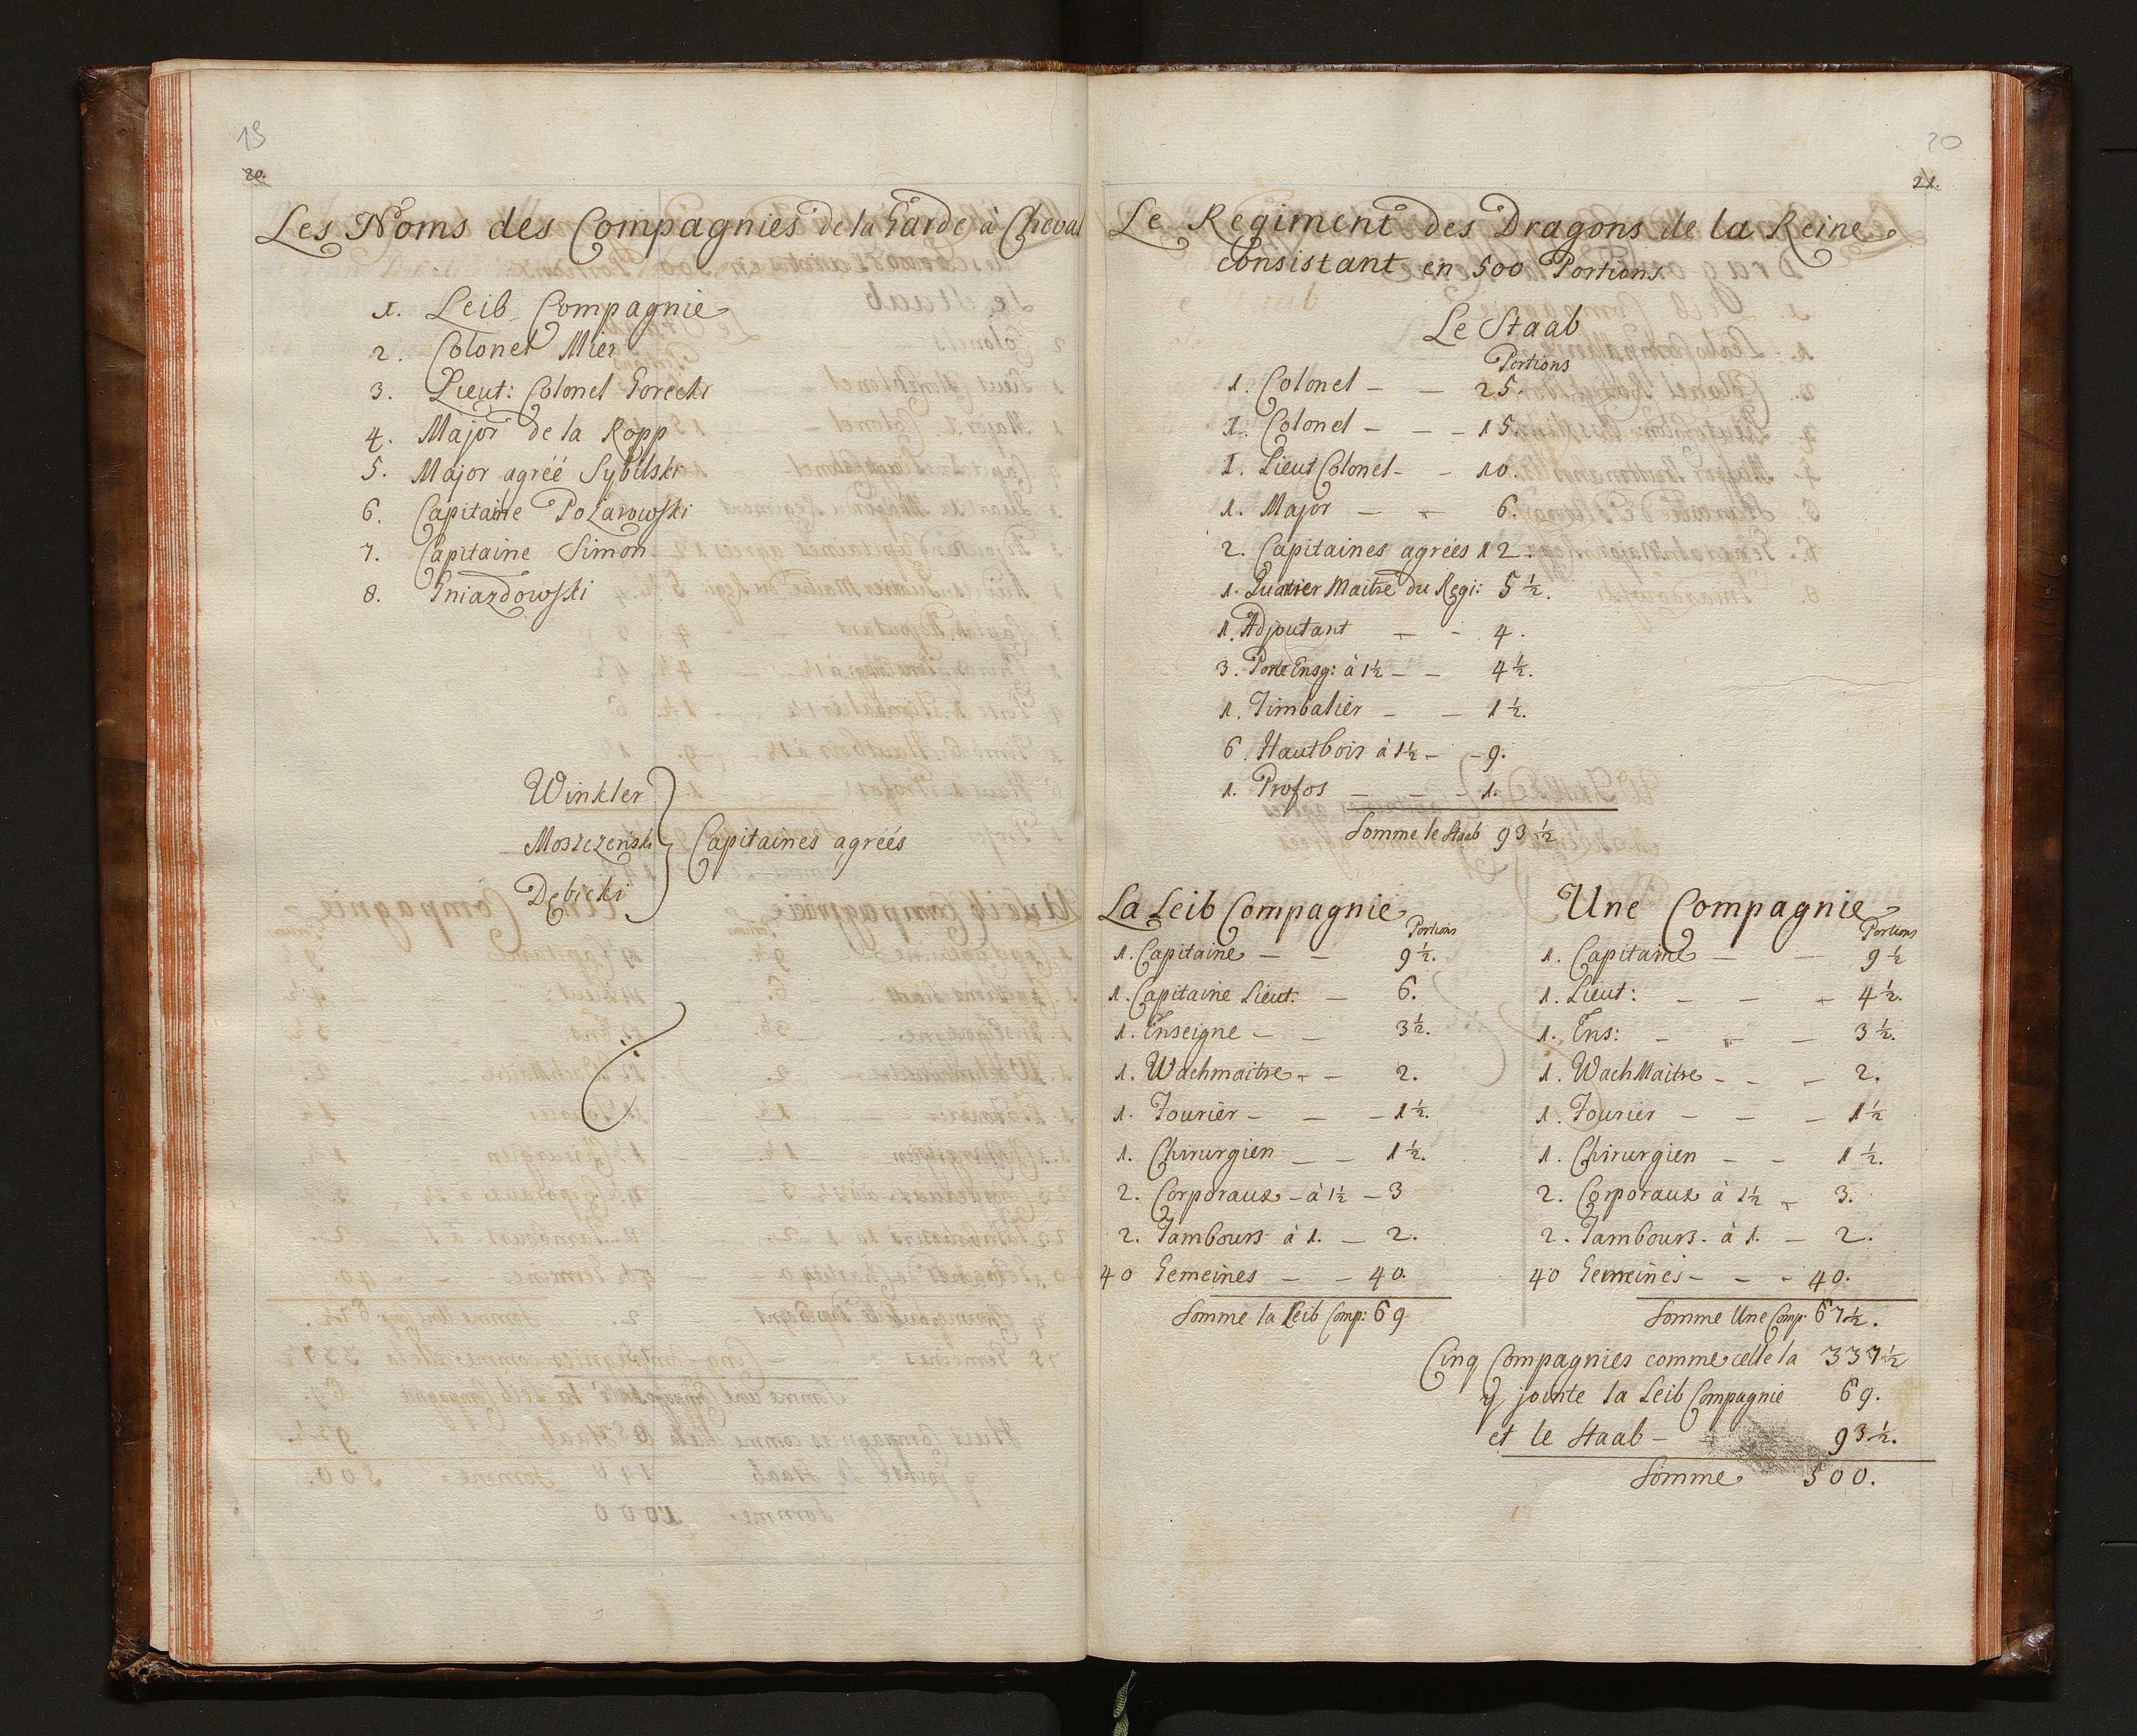 19
20.
Les Noms des Compagnies de la Garde à Cheval
1. Leib Compagnie
2. Colonel Mier
3. Lieut: Colonel Gorecki
4. Major de la Ropp
5. Major agréé Sybilski
6. Capitaine Pozarowski
7. Capitaine Simon
8. Gniazdowski
Winkler
Moszczenski
Dębicki
Capitaines agréés
20
21.
Le Regiment des Dragons de la Reine
consistant en 500 Portions
Le Staab
Portions
1. Colonel — — 25.
1. Colonel — — 15.
1. Lieut Colonel — — 10.
1. Major — — 6.
2. Capitaines agréés 12.
1. Quartier Maitre du Regi: 5½.
1. Adjoutant — — 4.
3. Porte Ensg: à 1½ — — 4½.
1. Timbalier — — 1½.
6. Hautbois à 1½ — — 9.
1. Profos — — — 1.
Somme le Staab 93½
La Leib Compagnie
Portions
1. Capitaine — — 9½.
1. Capitaine Lieut. — 6.
1. Enseigne — — 3½.
1. Wachmaitre — — 2.
1. Fourier — — — 1½.
1. Chirurgien — — 1½.
2. Corporaux — à 1½ — 3
2. Tambours à 1. — 2.
40 Gemeines — — 40.
Somme la Leib Comp: 69
Une Compagnie
Portions
1. Capitaine — — 9½
1. Lieut: — — — 4½.
1. Ens: — — — 3½.
1. WachMaitre — — — 2.
1. Fourier — — — 1½
1. Chirurgien — — 1½.
2. Corporaux à 1½ — 3.
2. Tambours. à 1. — 2.
40 Gemeines — — — 40.
Somme Une Comp: 67½.
Cinq Compagnies comme celle la 337½
y jointe la Leib Compagnie 69.
et le Staab — — 93½.
Somme 500.